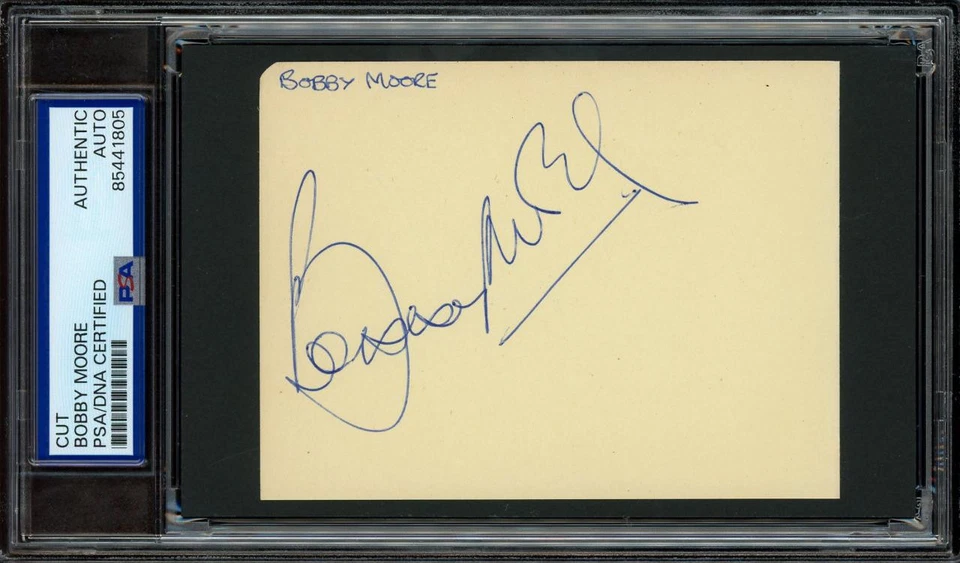 CUT
BOBBY MOORE
PSA/DNA CERTIFIED
AUTHENTIC
AUTO
85441805
PSA
BOBBY MOORE
Bobby Moore